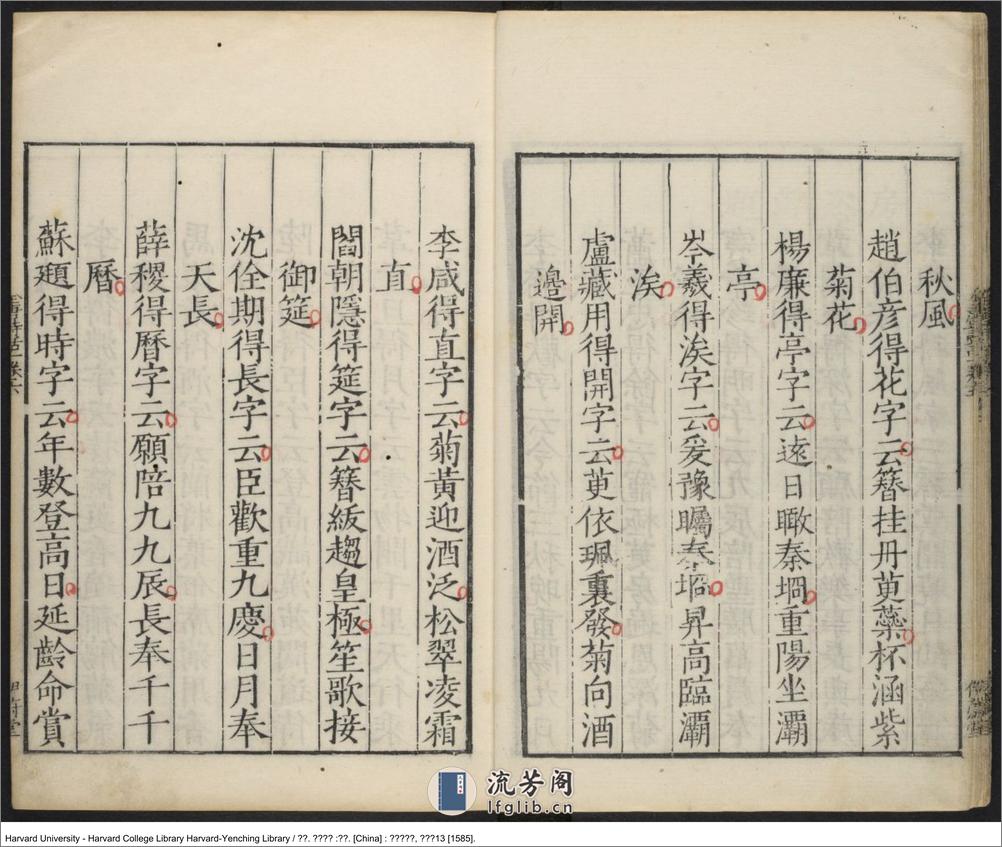 秋風
趙伯彦得花字云簪挂丹萸蘂杯涵紫
菊花
楊廉得亭字云遠日瞰秦坰重陽坐灞
亭
岑羲得涘字云爰豫矚秦坰昇高臨灞
涘
盧藏用得開字云萸依珮裏發菊向酒
邉開
李咸得直字云菊黃迎酒泛松翠凌霜
直
閻朝隱得筵字云簪紱趨皇極笙歌接
御筵
沈佺期得長字云臣歡重九慶日月奉
天長
薛稷得曆字云願陪九九辰長奉千千
曆
蘇頲得時字云年數登高日延齡命賞
流芳阁
lfglib.cn
Harvard University - Harvard College Library Harvard-Yenching Library / ??. ???? :??. [China] : ?????, ???13 [1585].